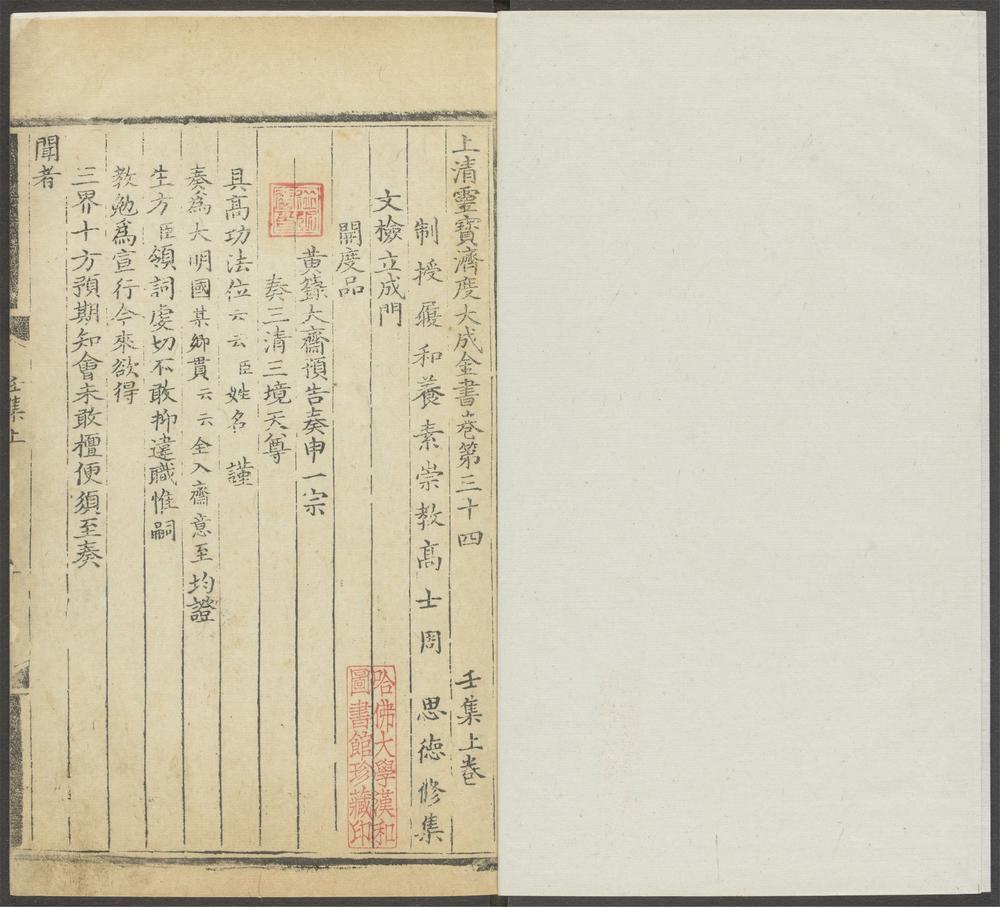 上清靈寶濟度大成金書卷第三十四　壬集上卷
制授履和養素崇教髙士周　思德修集
文檢立成門
開度品
黃籙大齋預告奏申一宗
奏三清三境天尊
具髙功法位云云臣姓名　謹
奏爲大明國某鄉貫云云全入齋意至均證
生方臣領詞虔切不敢抑違職惟嗣
教勉爲宣行今來欲得
三界十方預期知會未敢擅便須至奏
聞者
壬集上
哈佛大學漢和
圖書館珍藏印